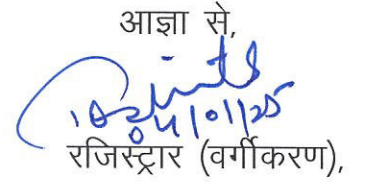 आज्ञा से,
04/01/25
रजिस्ट्रार (वर्गीकरण),